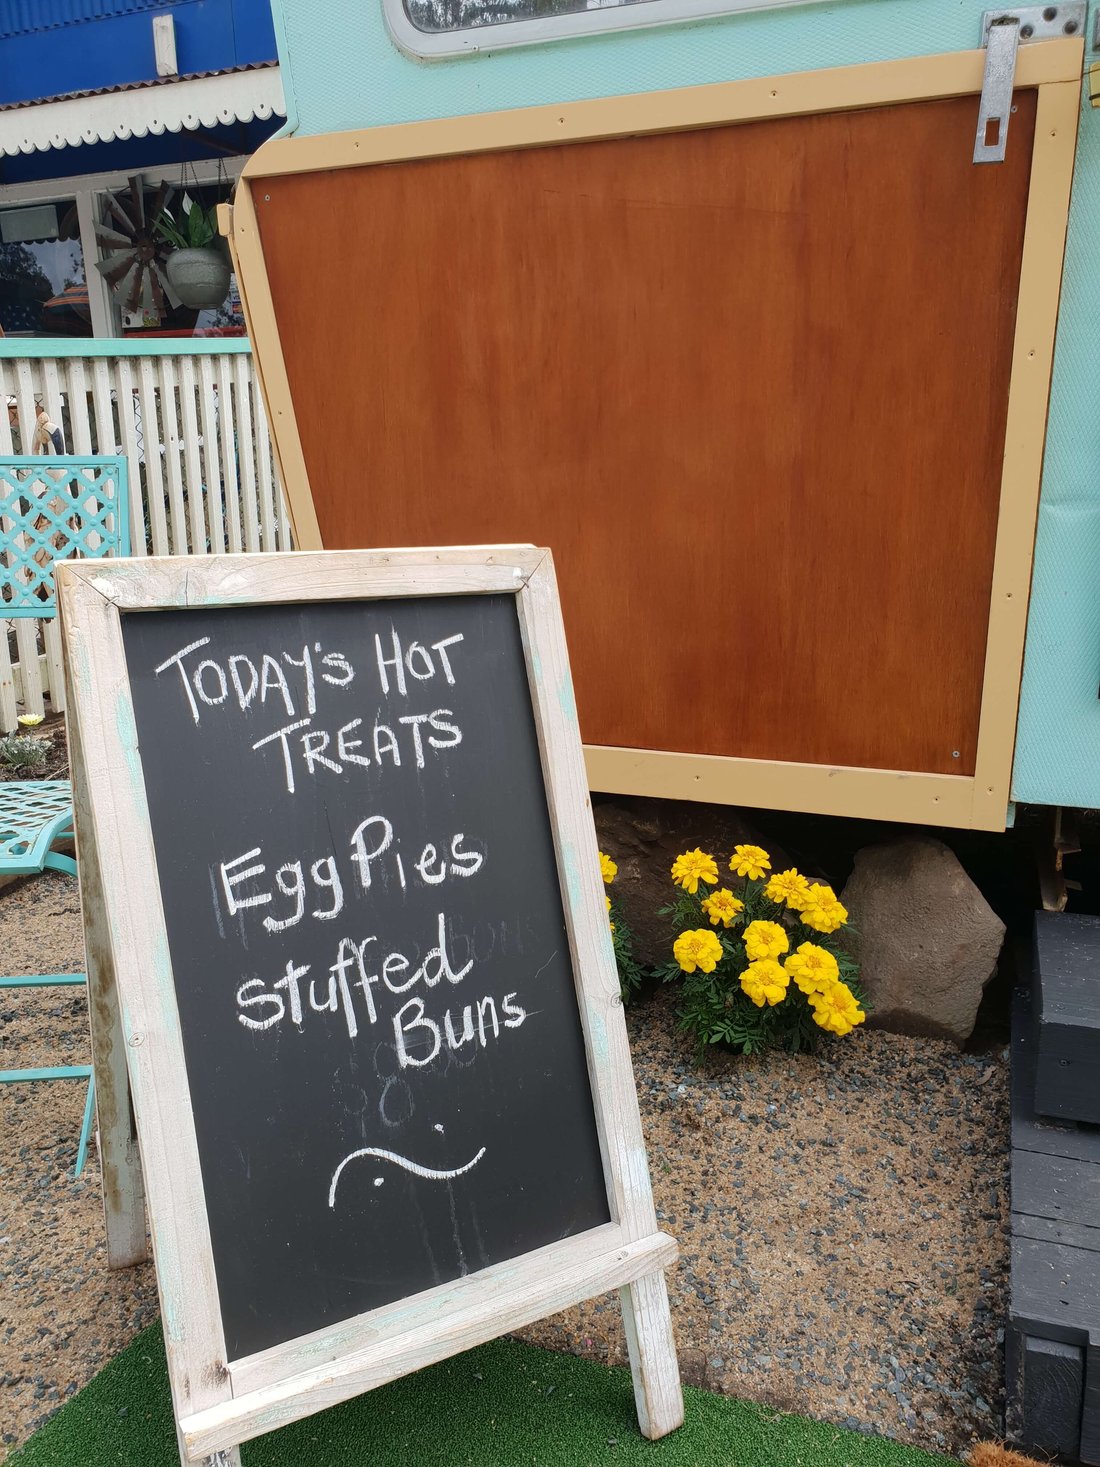 TODAY'S HOT
TREATS
Egg Pies
stuffed
Buns